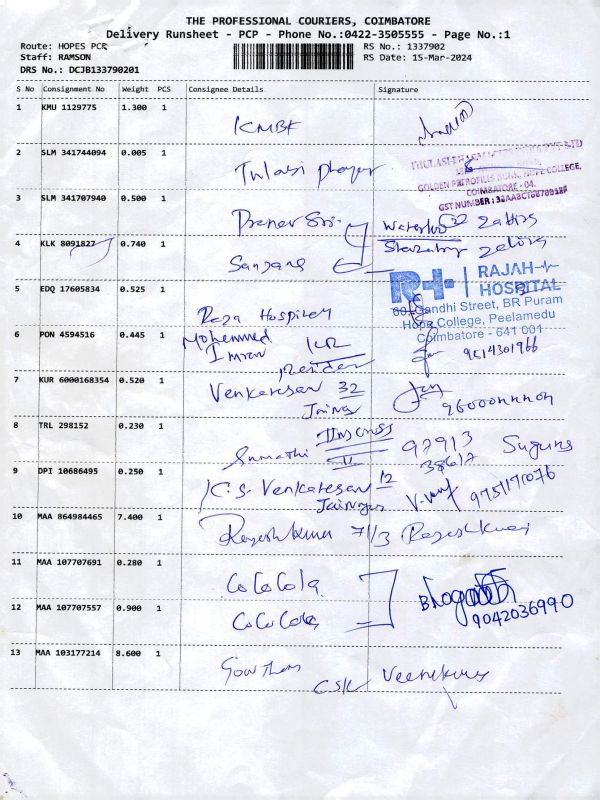 THE PROFESSIONAL COURIERS, COIMBATORE
Delivery Runsheet - PCP - Phone No.:0422-3505555 - Page No.:1
Route: HOPES PCR
RS No.: 1337902
Staff: RAMSON
RS Date: 15-Mar-2024
DRS No.: DCJB133790201
S No Consignment No Weight PCS Consignee Details Signature
1 KMU 1129775 1.300 1
KMBF
2 SLM 341744094 0.005 1
Tulasi
GOLDEN COLLEGE,
COIMBATORE - 04.
GST NUMBER :
3 SLM 341707940 0.500 1
Pranav Sri
4 KLK 8091827 0.740 1
Sanjana
R+ RAJAH
HOSPITAL
60, Gandhi Street, BR Puram
Hope College, Peelamedu
Coimbatore - 641 001
5 EDQ 17605834 0.525 1
Raja Hospital
6 PON 4594516 0.445 1
Mohammed
Imran
9514301966
7 KUR 6000168354 0.520 1
Venkatesan 32
Jainagar
8 TRL 298152 0.230 1
Sumathi
97913
38617
Suguna
9 DPI 10686495 0.250 1
K.S. Venkatesan 12
Jainagar
9751171076
10 MAA 864984465 7.400 1
Rajesh Kumar 71/3 Rajesh Kumar
11 MAA 107707691 0.280 1
CoCoCola
12 MAA 107707557 0.900 1
CoCoCola
9042036990
13 MAA 103177214 8.600 1
Gowtham
CSK